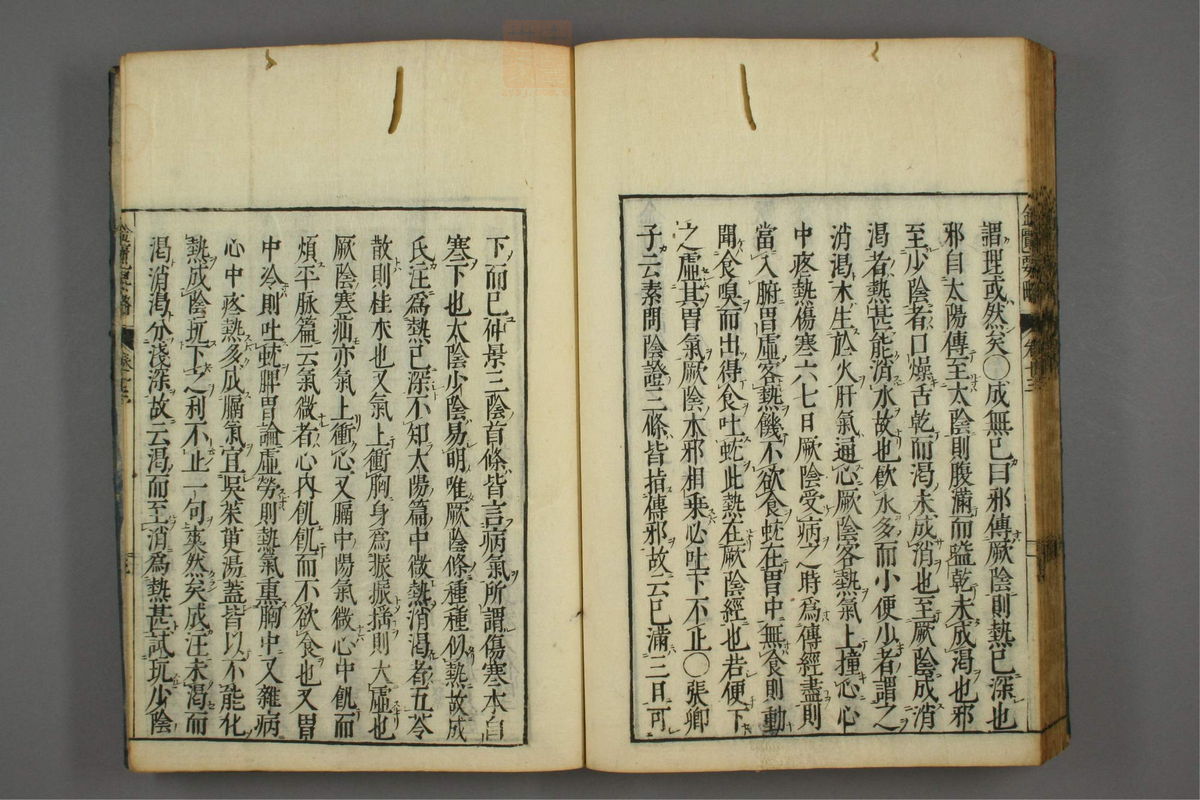 謂理或然矣〇成無已曰邪傳厥陰則熱已深也
邪自太陽傳至太陰則腹滿而嗌乾未成渴也邪
至少陰者口燥舌乾而渴未成消也至厥陰成消
渴者熱甚能消水故也飲水多而小便少者謂之
消渴木生於火肝氣通心厥陰客熱氣上撞心心
中疼熱傷寒六七日厥陰受病之時爲傳經盡則
當入腑胃虛客熱饑不欲食蚘在胃中無食則動
聞食嗅而出得食吐蚘此熱在厥陰經也若便下
之虛其胃氣厥陰木邪相乘必吐下不止〇張卿
子云素問陰證三條皆指傳邪故云已滿三日可
下而已仲景三陰首條皆言病氣所謂傷寒本自
寒下也太陰少陰易明唯厥陰條種種似熱故成
氏注爲熱已深不知太陽篇中微熱消渴者五苓
散則桂水也又氣上衝胸身爲振振搖則大虛也
厥陰寒疝亦氣上衝心又膈中陽氣微心中飢而
煩平脉篇云氣微者心內飢飢而不欲食也又胃
中冷則吐蚘脾胃論虛勞則熱氣熏胸中又雜病
心中疼熱多成膈氣宜吳茱萸湯蓋皆以不能化
熱成陰玩下之利不止一句爽然矣成注未渴而
渴消渴分淺深故云渴而至消爲熱甚試玩少陰